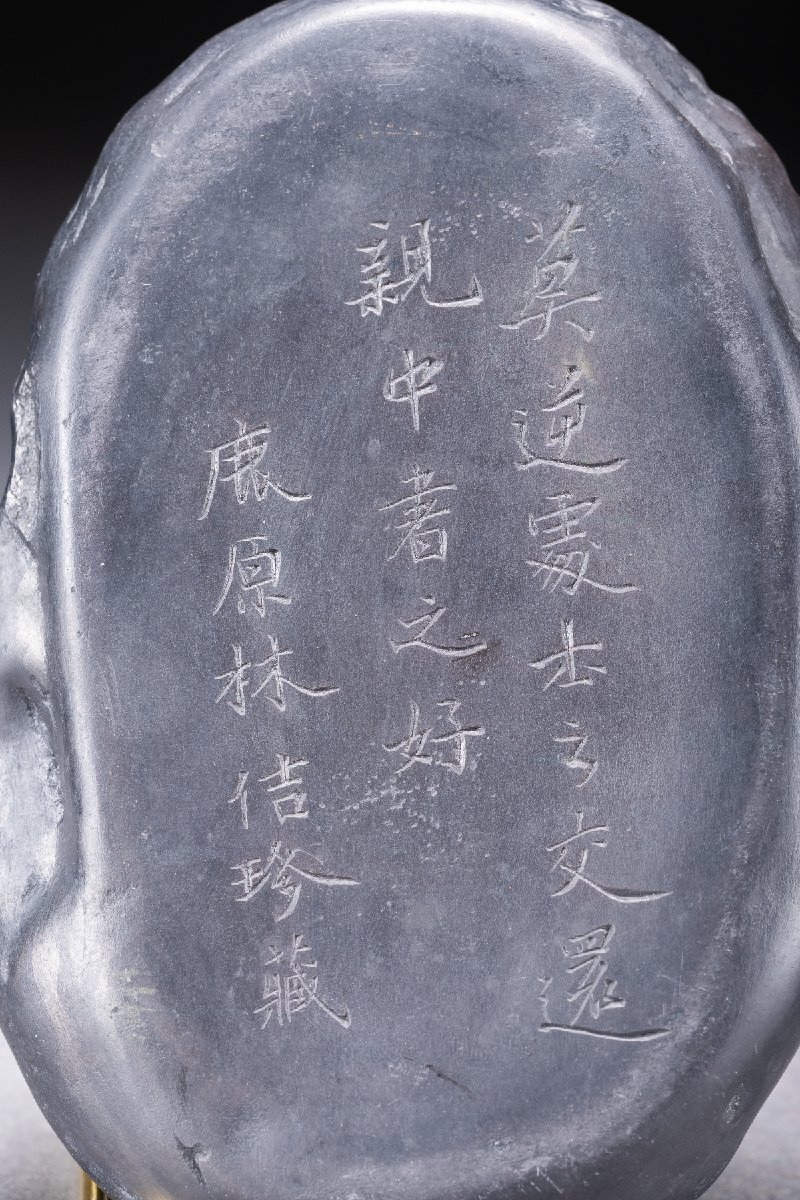 莫逆處士之交還
親中書之好
鹿原林佶珍藏